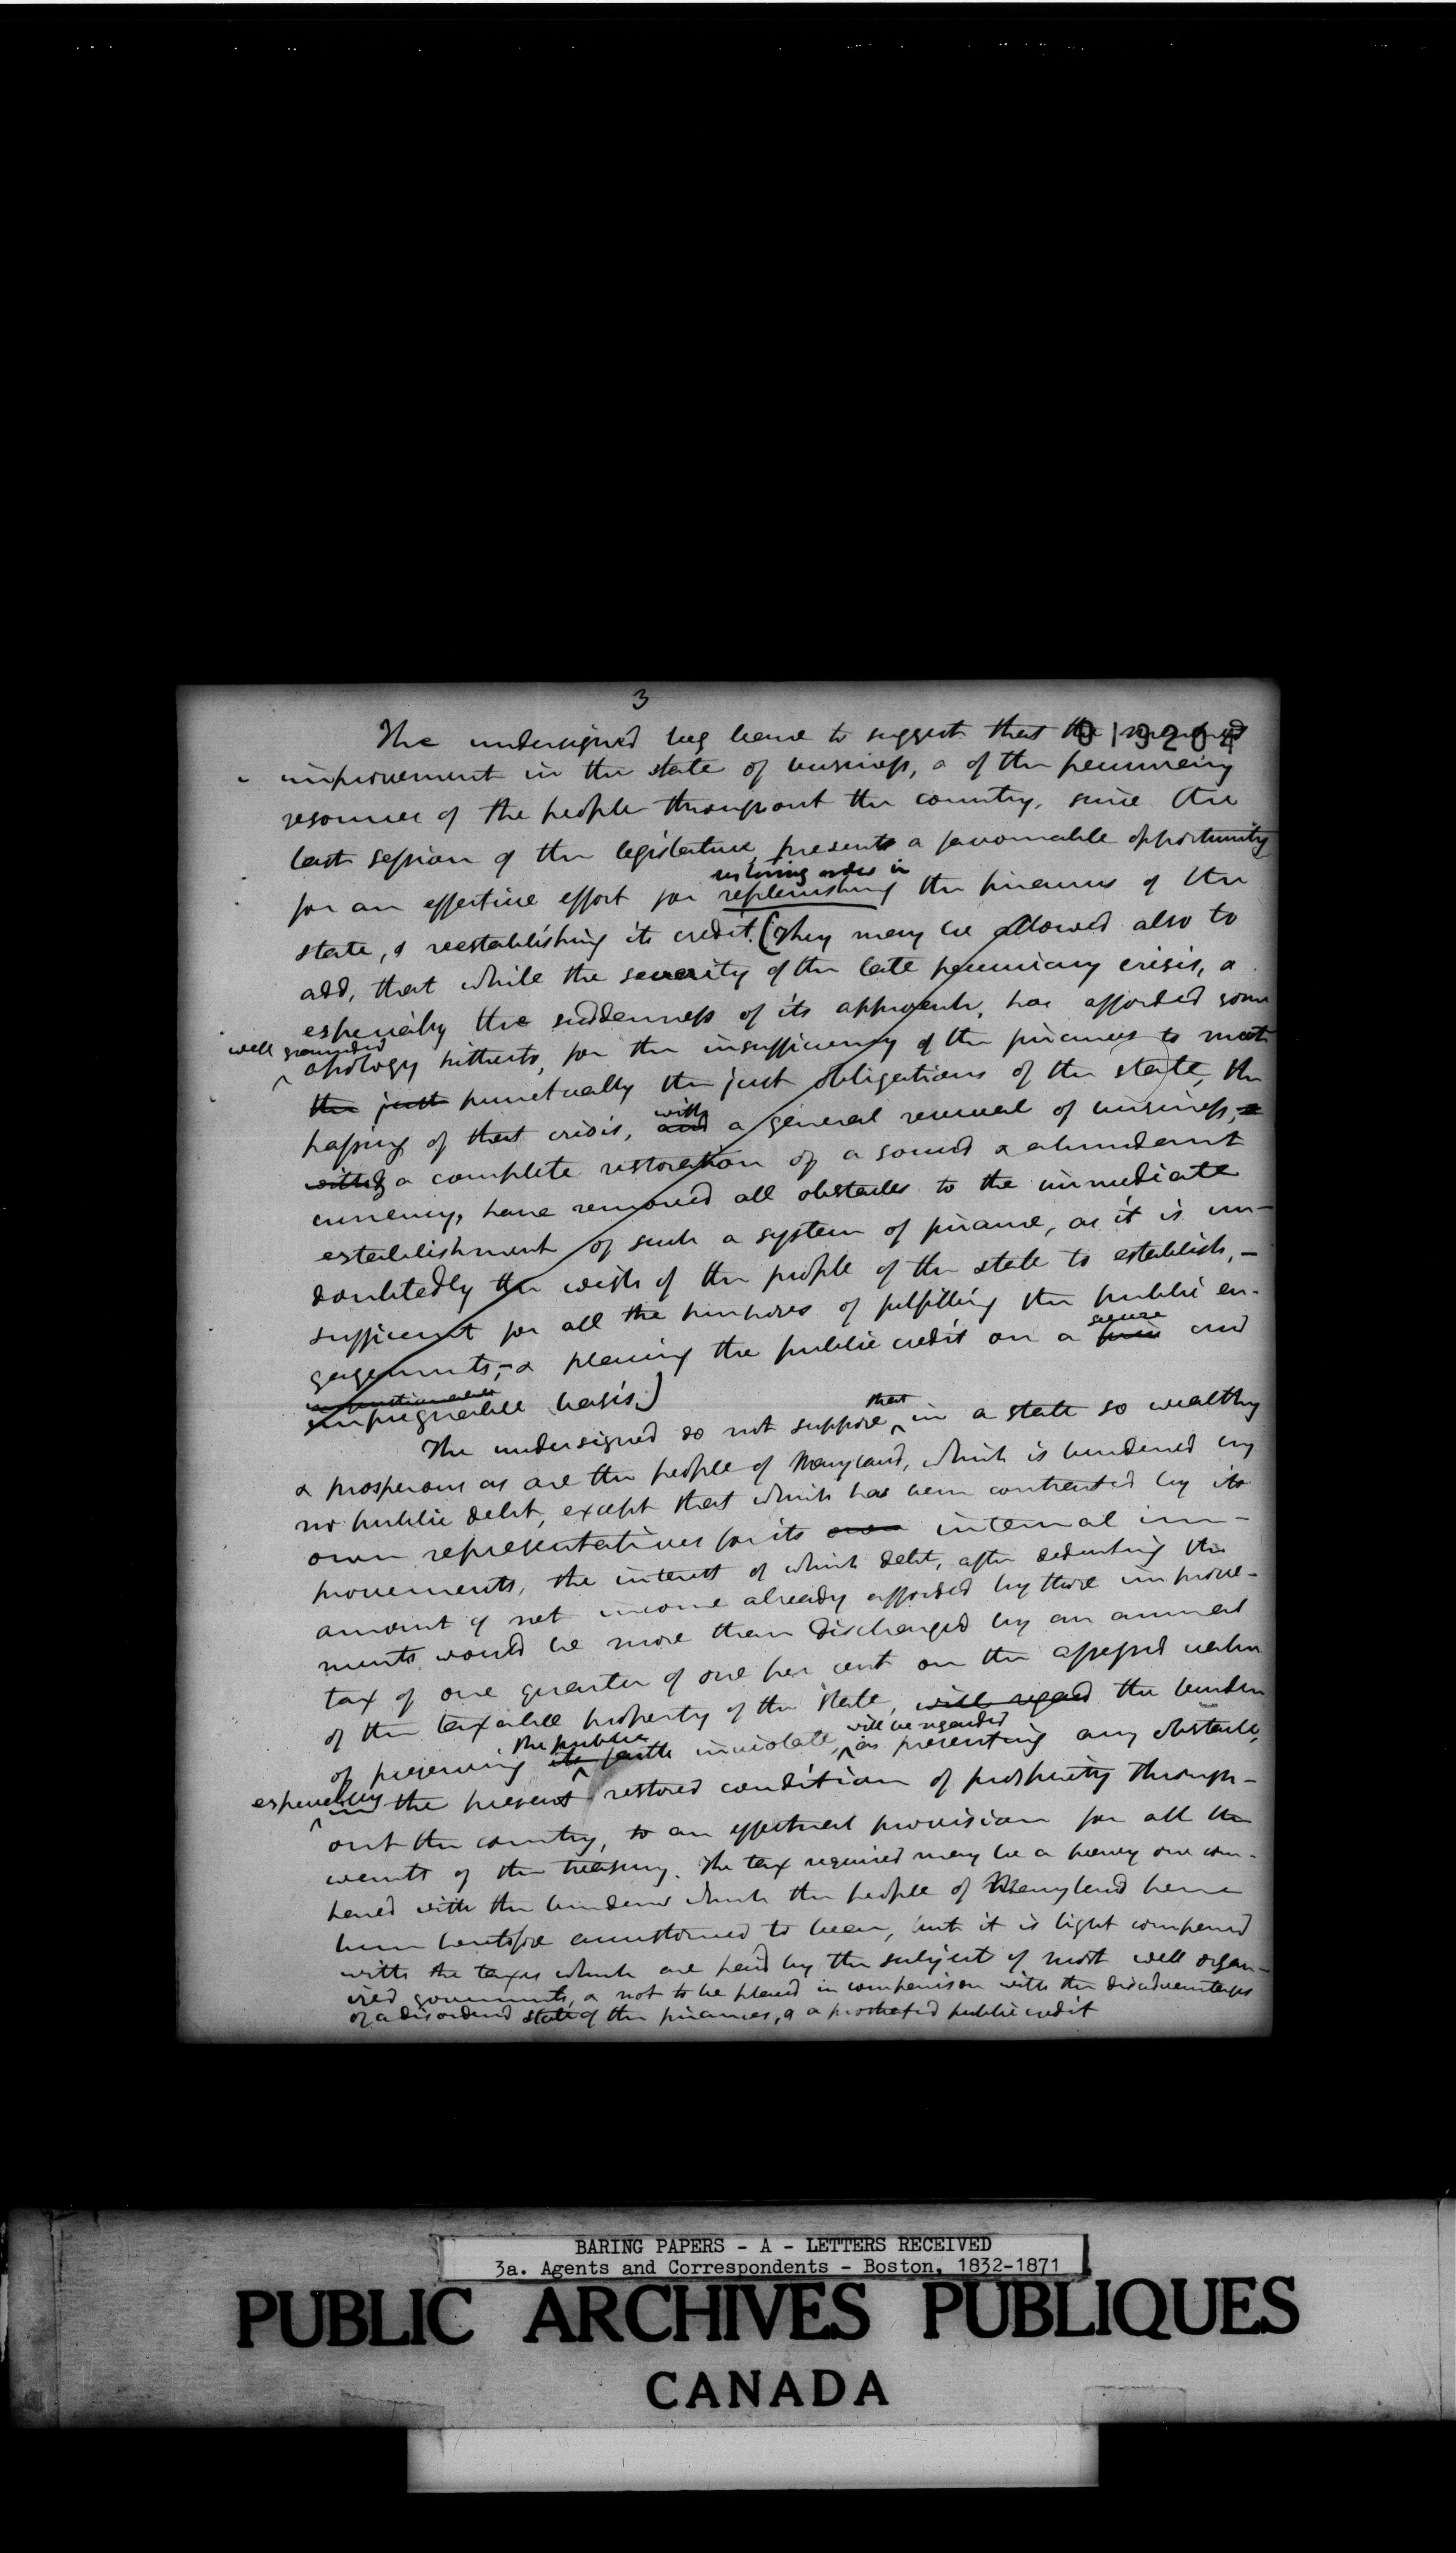 3
The undersigned beg leave to suggest that the
019204
improvement in the state of business, & of the pecuniary
resources of the people throughout the country, since the
last session of the legislature, presents a favourable opportunity
restoring order in
for an effective effort for replenishing the finances of the
state, & reestablishing its credit. (They may be allowed also to
add, that while the severity of the late pecuniary crisis, &
especially the suddenness of its approach, has afforded some
well grounded
apology hitherto, for the insufficiency of the finances to meet
the just punctually the just obligations of the state, the
with
passing of that crisis, and a general renewal of business, &
with a complete restoration of a sound & abundant
currency, have removed all obstacles to the immediate
establishment of such a system of finance, as it is un-
doubtedly the wish of the people of the state to establish, -
sufficient for all the purposes of fulfilling the public en-
secure
gagements, - & placing the public credit on a firm and
unquestionable
impregnable basis.)
that
The undersigned do not suppose in a state so wealthy
& prosperous as are the people of Maryland, which is burdened by
no public debt, except that which has been contracted by its
own representatives for its own internal im-
provements, the interest of which debt, after deducting the
amount of net income already afforded by those improve-
ments would be more than discharged by an annual
tax of one quarter of one per cent on the assessed value
of the taxable property of the state, will regard the burden
the public will be regarded
of preserving its faith inviolate, as presenting any obstacle,
especially
in the present restored condition of prosperity through-
out the country, to an effectual provision for all the
wants of the treasury. The tax required may be a heavy one com-
pared with the burdens which the people of Maryland have
been heretofore accustomed to bear, but it is light compared
with the taxes which are paid by the subject of most well organ-
ized governments, & not to be placed in comparison with the disadvantages
of a disordered state of the finances, & a prostrated public credit
BARING PAPERS - A - LETTERS RECEIVED
3a. Agents and Correspondents - Boston, 1832-1871
PUBLIC ARCHIVES PUBLIQUES
CANADA